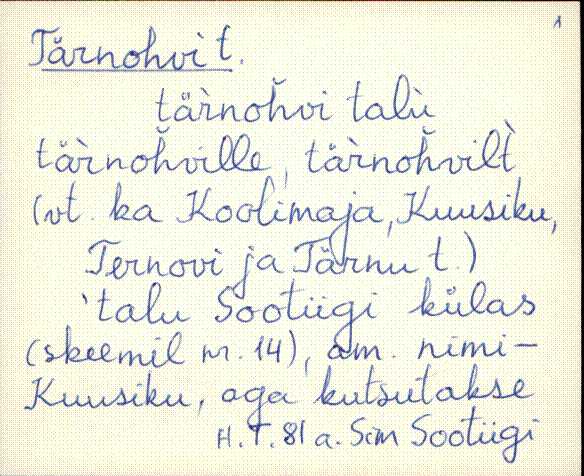 1
Tärnohvi t.
tä̀rnoh̆vi talù
tä̀rnoh̆ville, tä̀rnoh̆vilt̀
(vt. ka Koolimaja, Kuusiku,
Ternovi ja Tärnu t.)
'talu Sootiigi külas
(skeemil nr. 14), am. nimi-
Kuusiku, aga kutsutakse
H. T. 81 a. Sim Sootiigi